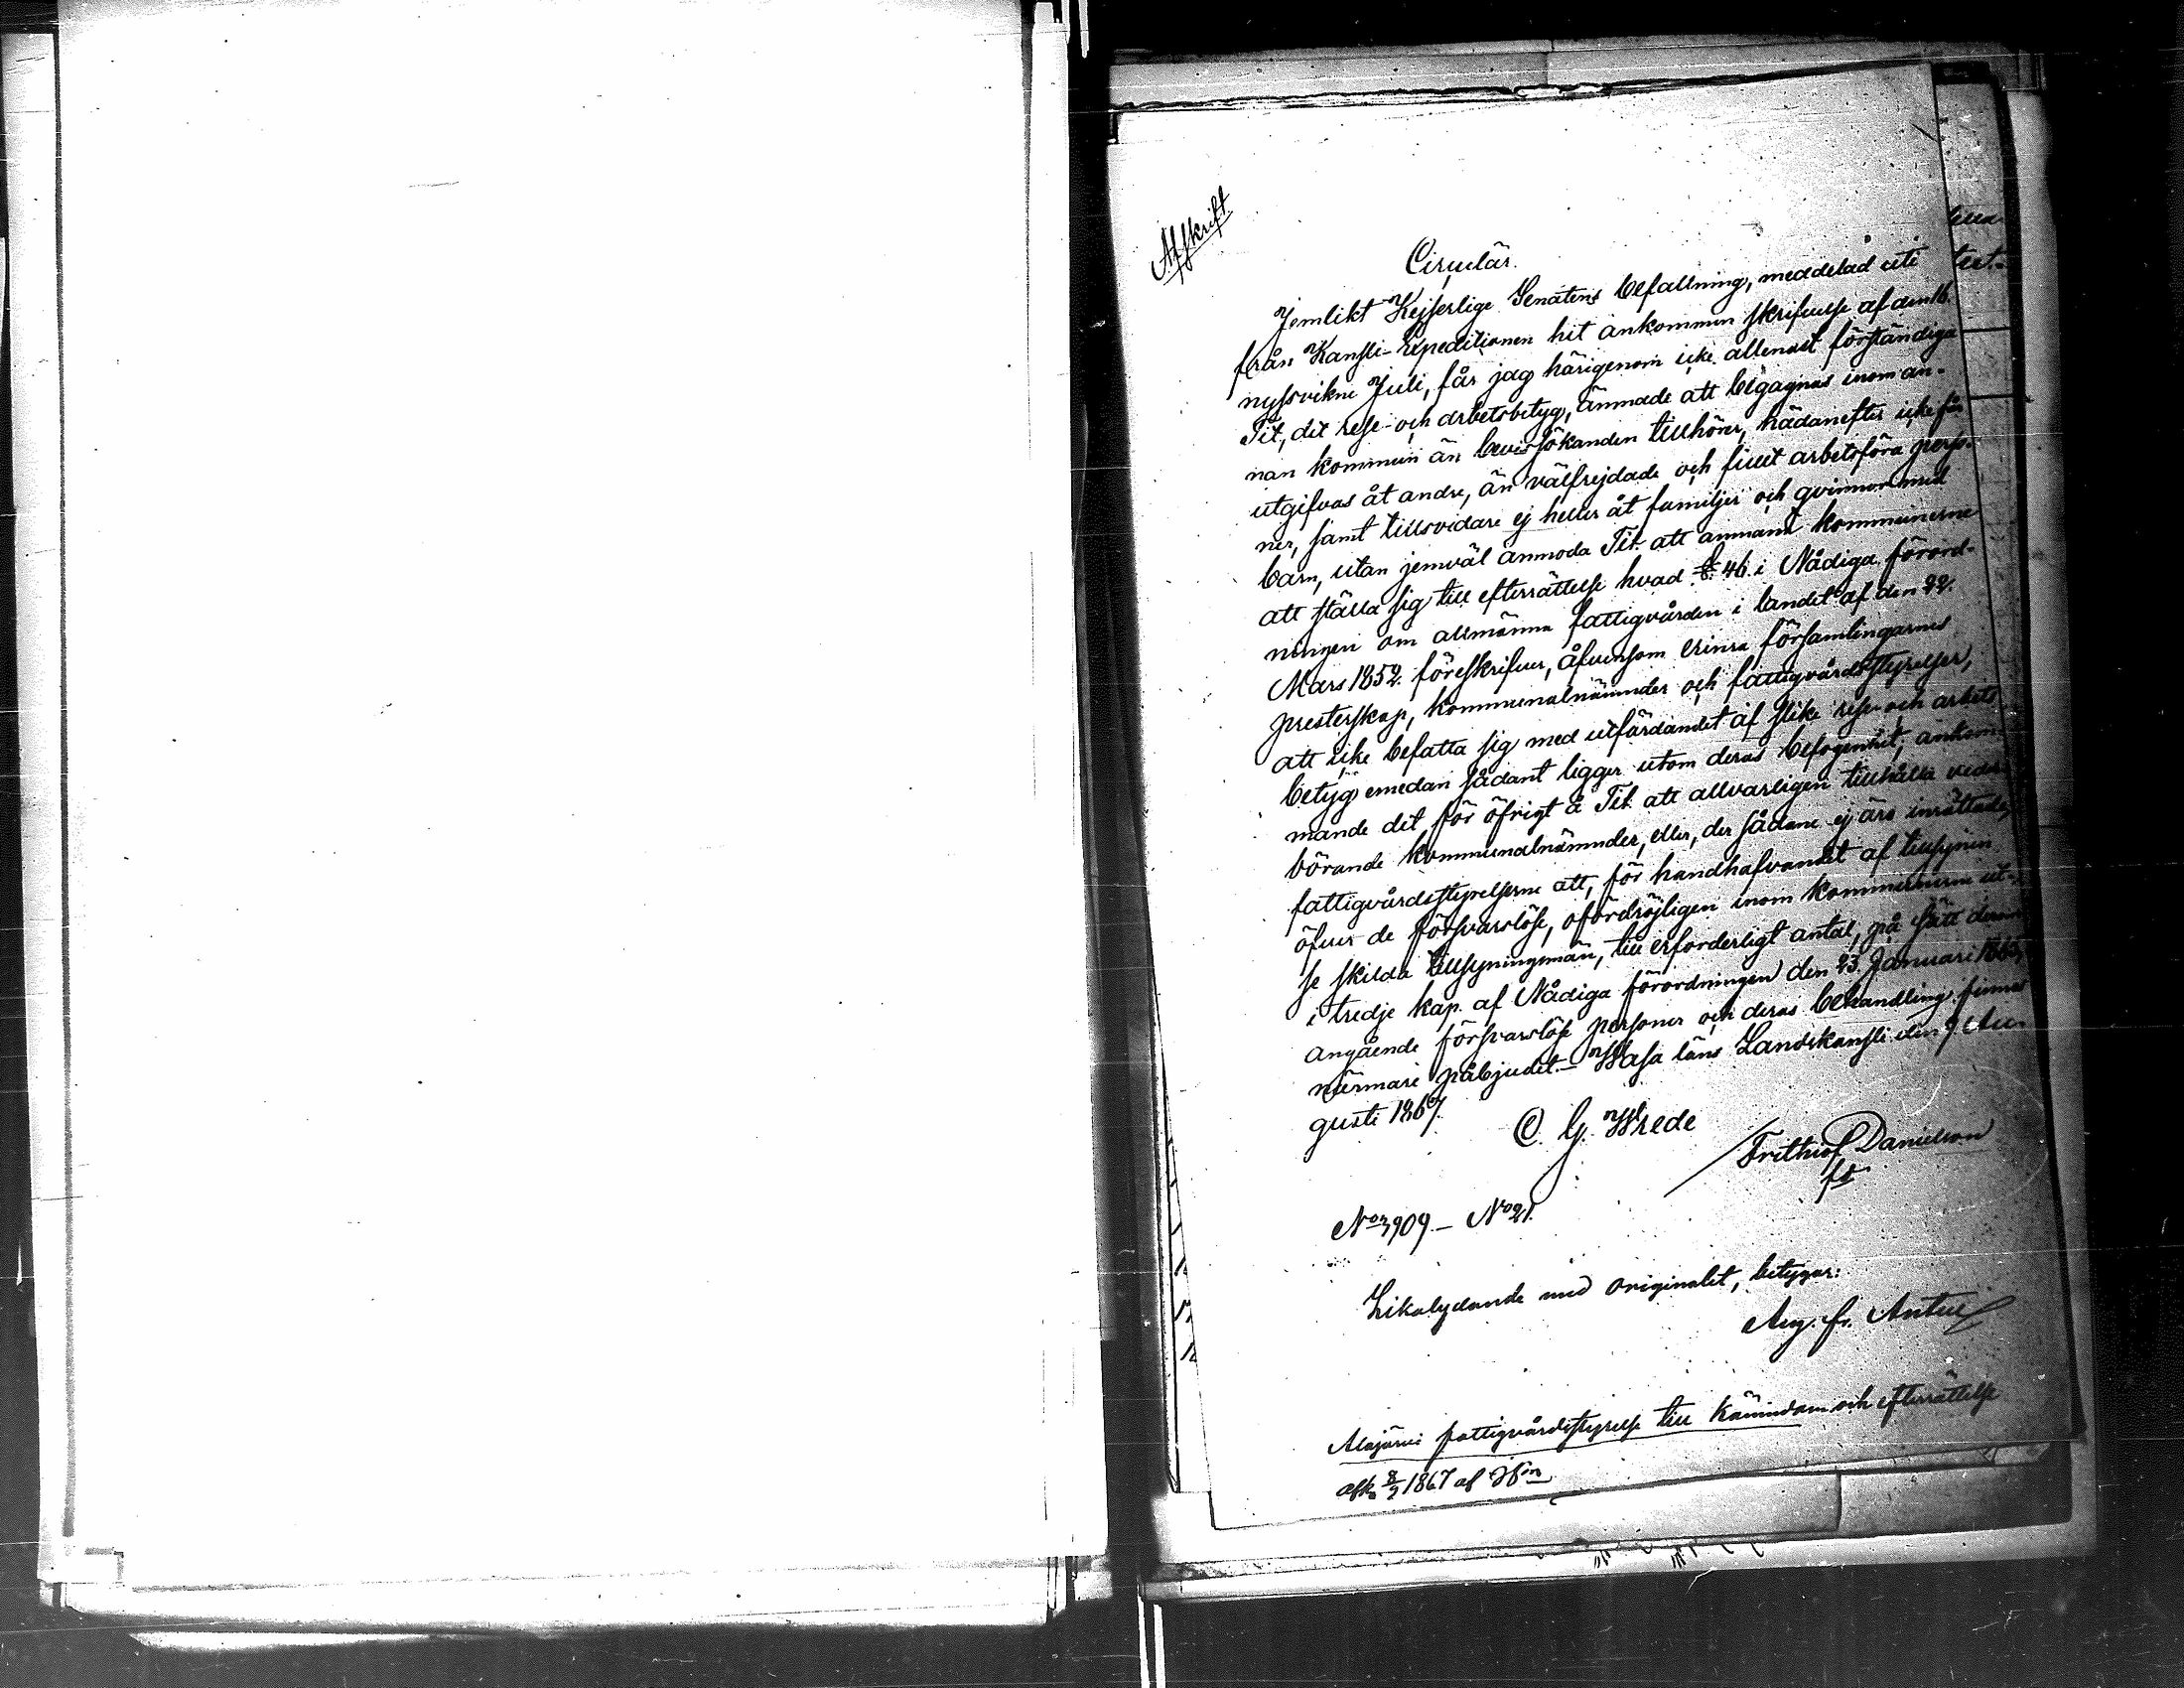 Afskrift
Circulär.
Jemlikt Kejserlige Senatens befallning, meddelad uti
från Kansli-Expeditionen hit ankommen skrifvelse af den 16.
nyssvikne Juli, får jag härigenom icke allenast förständiga
Tit, att rese- och arbetsbetyg, ämnade att begagnas inom an-
nan kommun än bevissökanden tillhörer, hädanefter icke få
utgifvas åt andre, än välfrejdade och fullt arbetsföra perso-
ner, samt tillsvidare ej heller åt familjer och qvinnor med
barn, utan jemväl anmoda Tit. att anmana kommunerne
att ställa sig till efterrättelse hvad §. 46 i Nådiga förord-
ningen om allmänna fattigvården i landet af den 22.
Mars 1852. föreskrifver, äfvensom erinra församlingarnes
presterskap, kommunalnämnder och fattigvårdsstyrelser,
att icke befatta sig med utfärdandet af slike rese- och arbets
betyg emedan sådant ligger utom deras befogenhet, ankom-
mande det för öfrigt å Tit. att allvarligen tillhålla veder-
börande kommunalnämnder, eller, der sådane ej äro inrättade,
fattigvårdsstyrelserne att, för handhafvandet af tillsynen
öfver de försvarslöse, ofördröjligen inom kommunerne ut-
se skilda tillsyningsmän, till erforderligt antal, på sätt derom
i tredje kap. af Nådiga förordningen den 23. Januari 1865,
angående försvarslöse personer och deras behandling finnes
närmare påbjudet.- Wasa läns Landskansli den 7. Au-
gusti 1867.
C. G. Wrede
Frithiof Danielson
No 3909.- No 21.
Likalydande med originalet, betygar:
Aug. Fr.
Alajärvi fattigvårdsstyrelse till kännedom och efterrättelse
1867 af